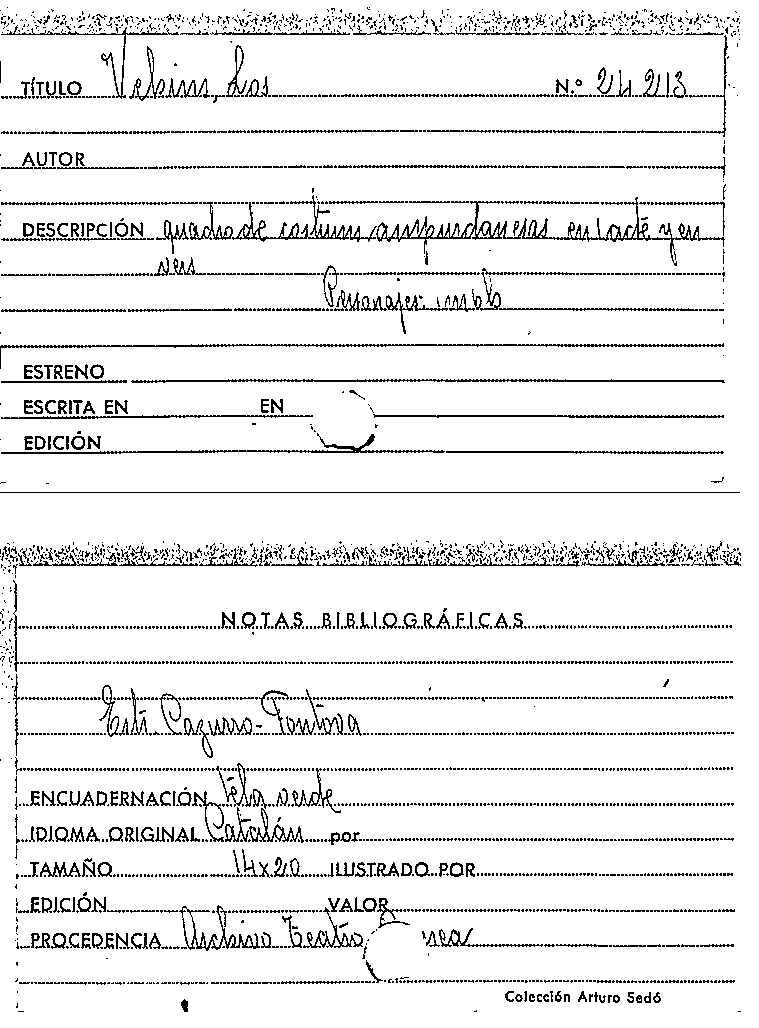 TÍTULO Vehins, Los N.º 24213
AUTOR
DESCRIPCIÓN quadro de costums ampurdanesas en 1 acte y en
vers
Personajes:
ESTRENO
ESCRITA EN EN
EDICIÓN
NOTAS BIBLIOGRÁFICAS
Estt. Cazurro-Fontova
ENCUADERNACIÓN tela verde
IDIOMA ORIGINAL Catalán por
TAMAÑO 14x20 ILUSTRADO POR
EDICIÓN VALOR
PROCEDENCIA Archivo Teatro
Colección Arturo Sedó